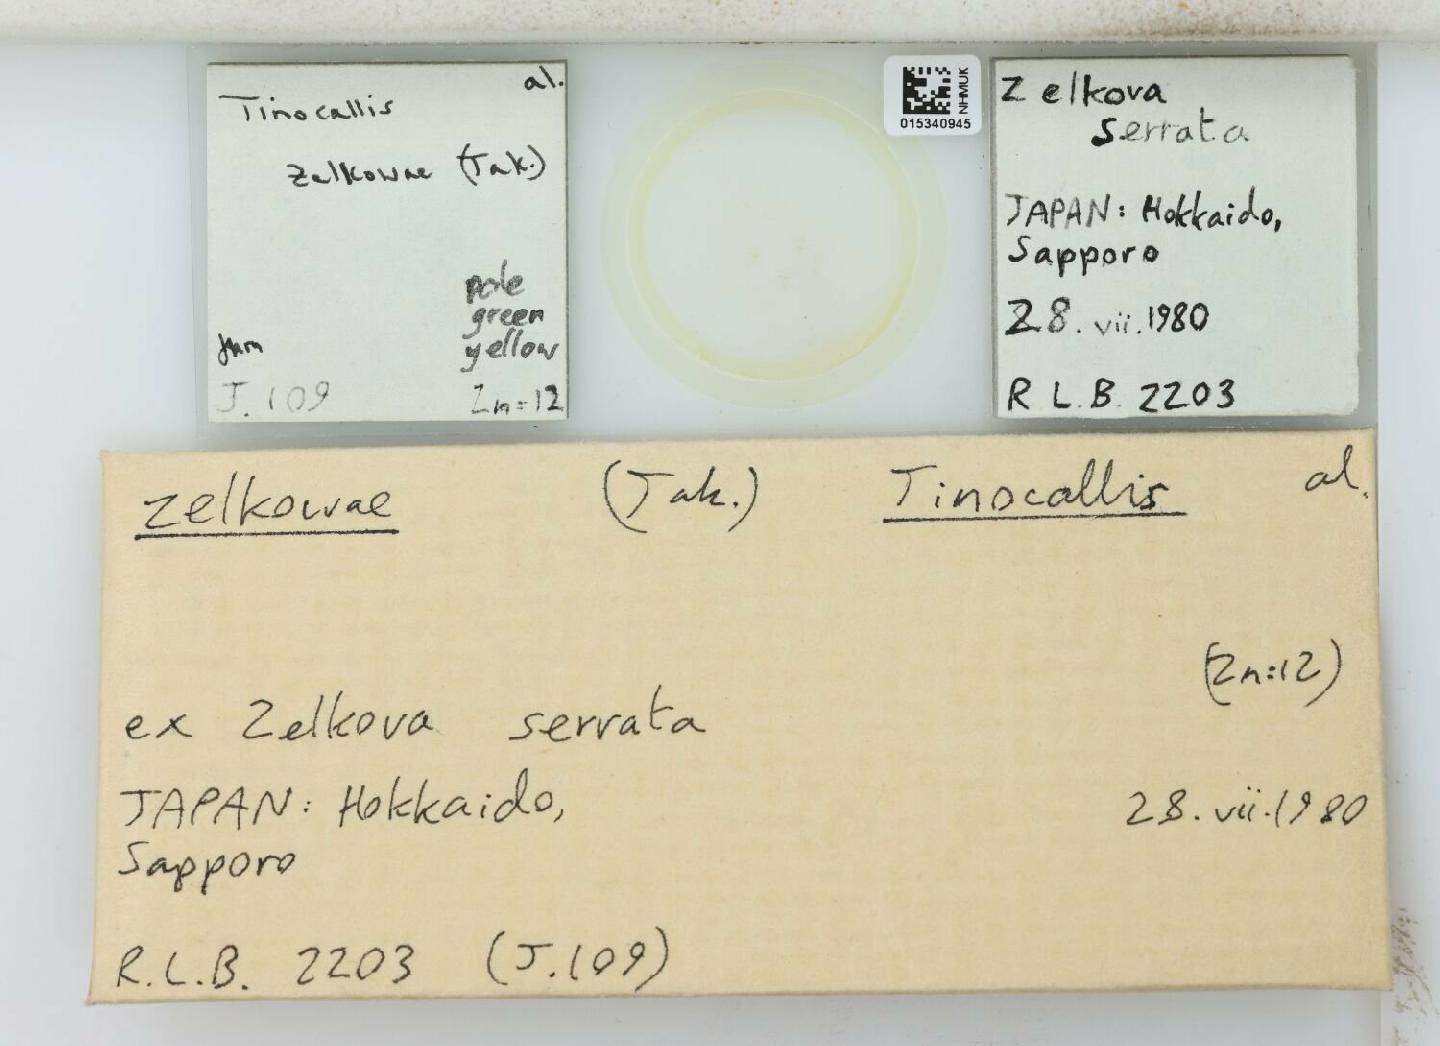 al.
Tinocallis
zelkowae (Tak.)
pale
green
yellow
J.109
2n=12
NHMUK
015340945
Zelkova
serrata
JAPAN: Hokkaido,
Sapporo
28.vii.1980
R L.B. 2203
zelkowae (Tak.) Tinocallis al.
(2n=12)
ex Zelkova serrata
JAPAN: Hokkaido,
28.vii.1980
Sapporo
R.L.B. 2203 (J.109)